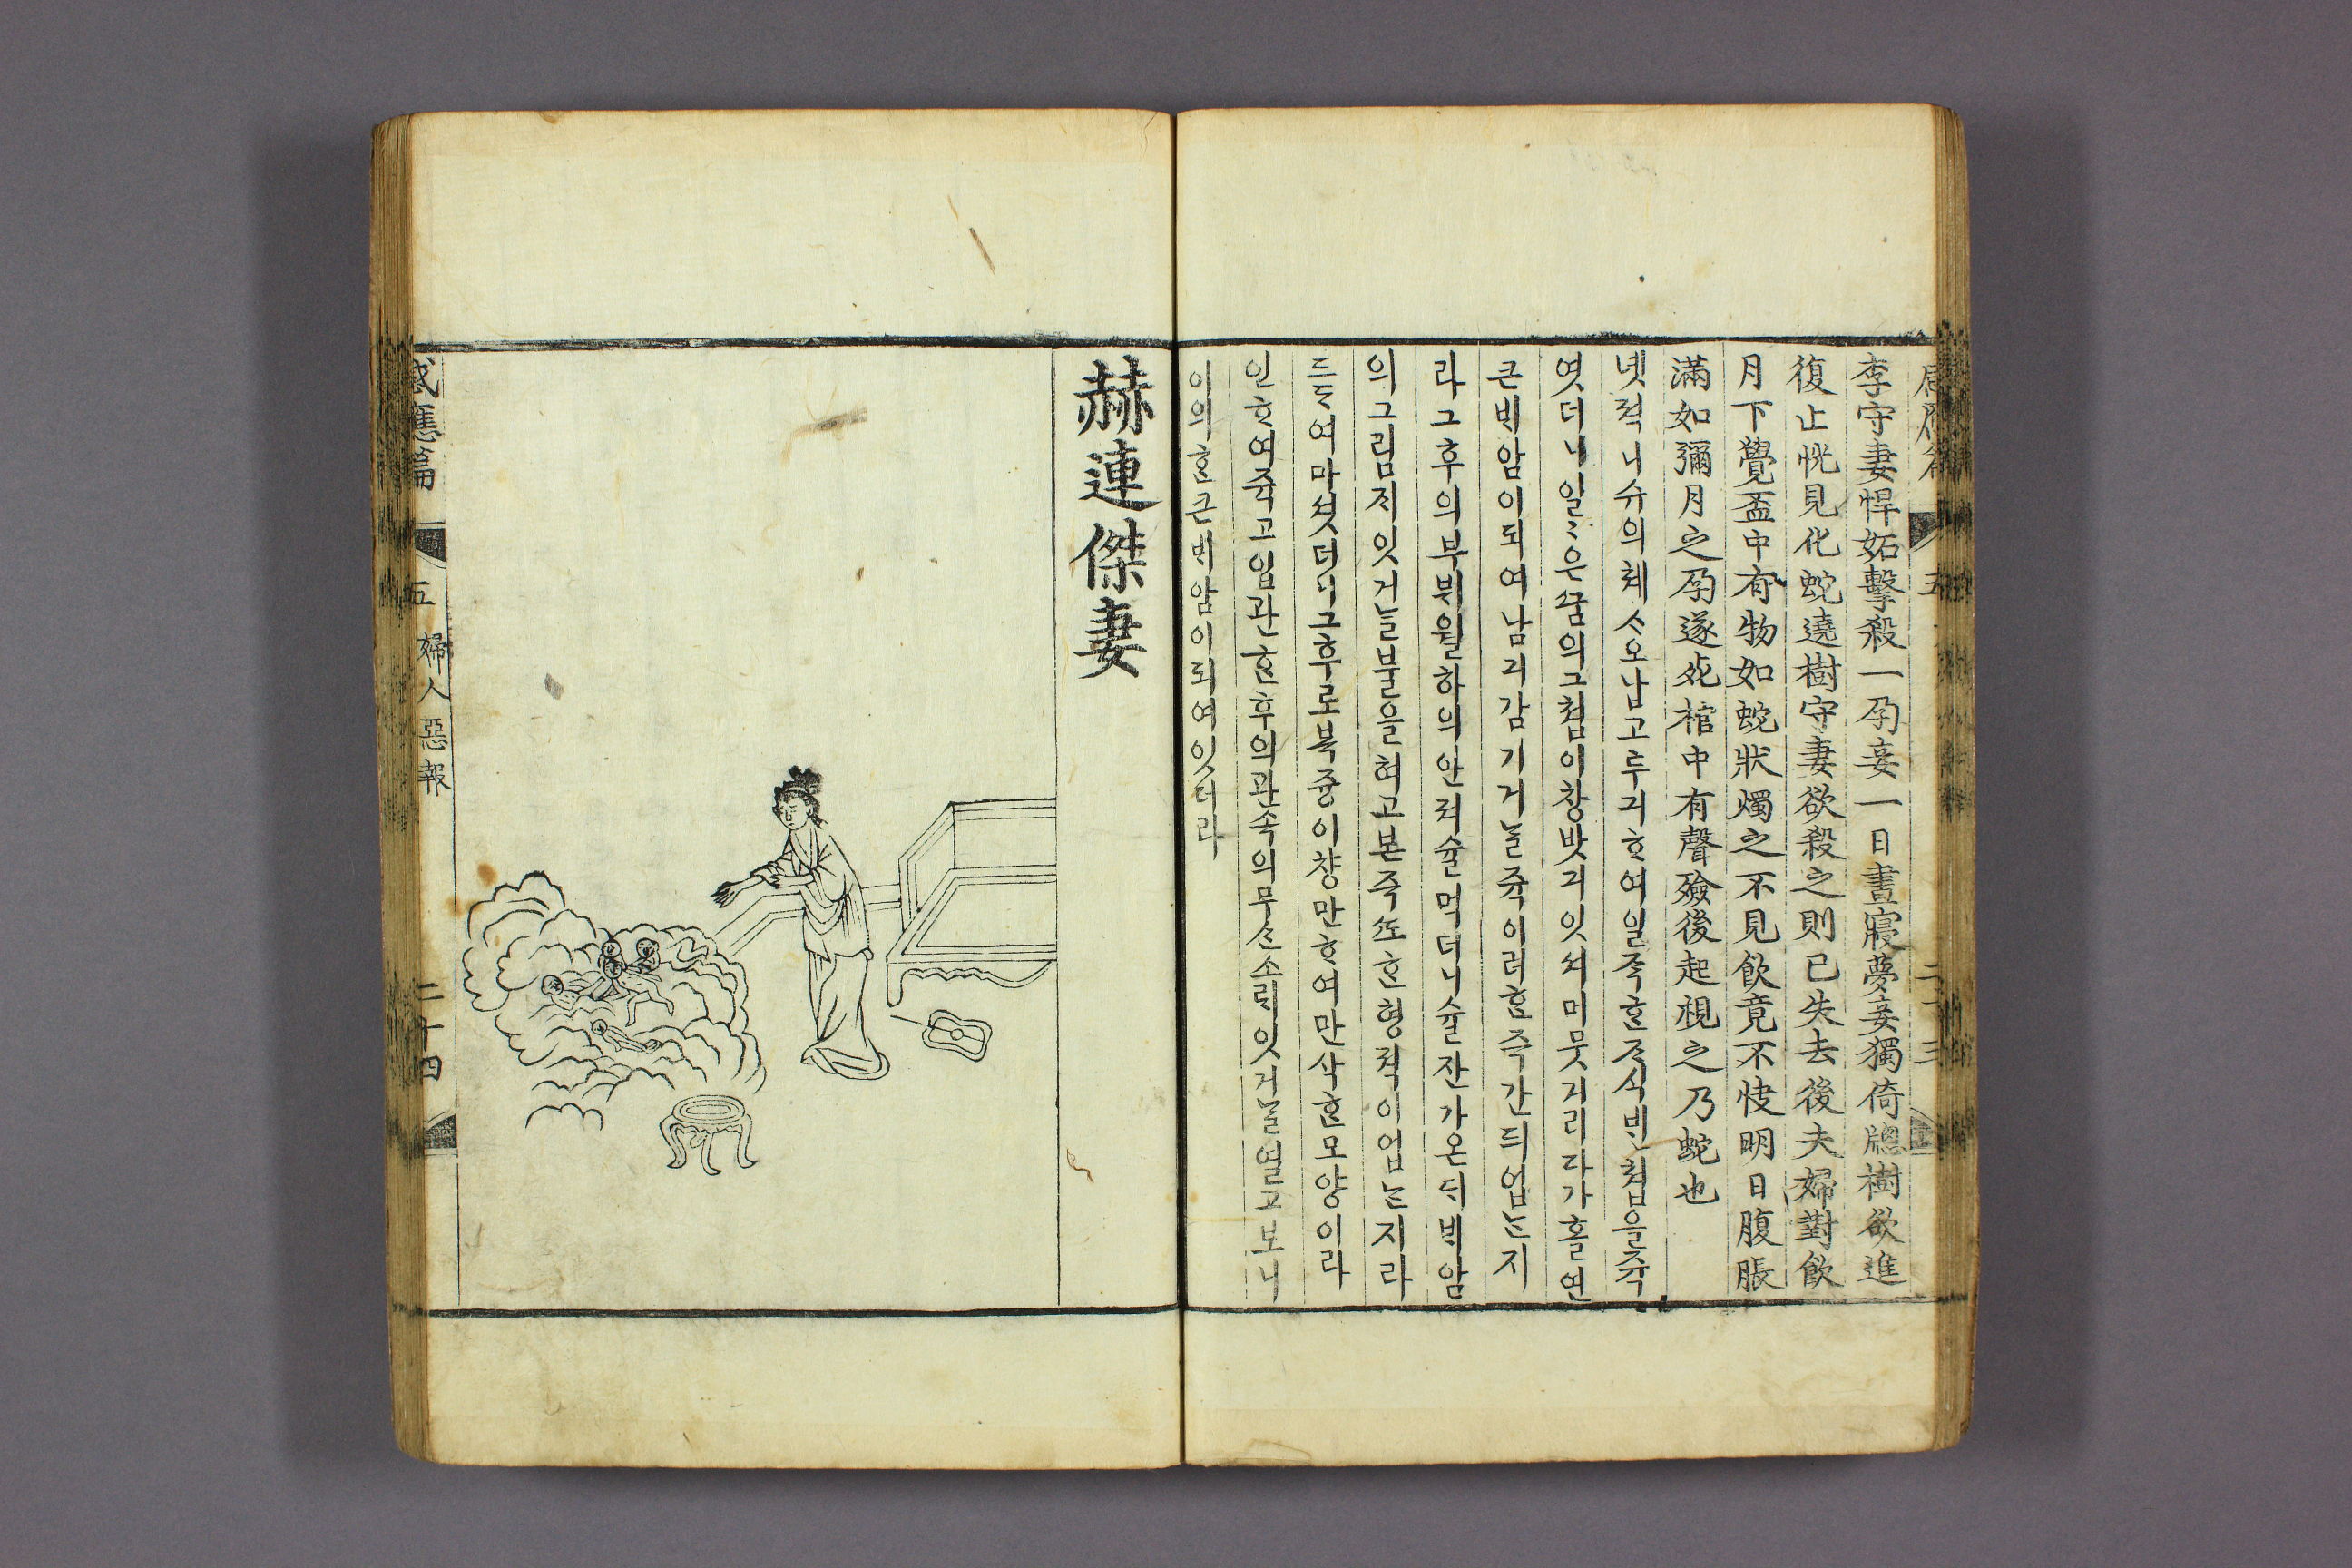 李守妻悍妬擊殺一孕妾一日晝寢夢妾獨倚牕樹欲進
復止恍見化蛇遶樹守妻欲殺之則已失去後夫婦對飮
月下覺盃中有物如蛇狀燭之不見飮竟不快明日腹脹
滿如彌月之孕遂死棺中有聲殮後起視之乃蛇也
녯젹니슈의쳬 ᄉ오납고투긔ᄒᆞ여일즉ᄒᆞᆫᄌᆞ식ᄇᆡᆫ쳡을쥭
엿더니일일은ᄭᅮᆷ의그쳡이창밧긔잇셔머뭇거리다가홀연
큰ᄇᆡ암이되여남긔감기거ᄂᆞᆯ쥭이려ᄒᆞᆫ즉간ᄃᆡ업ᄂᆞᆫ지
라그후의부뷔월하의안져슐먹더니슐잔가온ᄃᆡᄇᆡ암
의그림ᄌᆡ잇거ᄂᆞᆯ불을혀고본즉ᄯᅩᄒᆞᆫ형젹이업ᄂᆞᆫ지라
드듸여마셧더니그후로복즁이챵만ᄒᆞ여만삭ᄒᆞᆫ모양이라
인ᄒᆞ여쥭고입관ᄒᆞᆫ후의관속의무ᄉᆞᆫ소ᄅᆡ잇거ᄂᆞᆯ열고보니
이의ᄒᆞᆫ큰ᄇᆡ암이되여잇더라
赫連傑妻
感應篇 五 婦人惡報 二十四